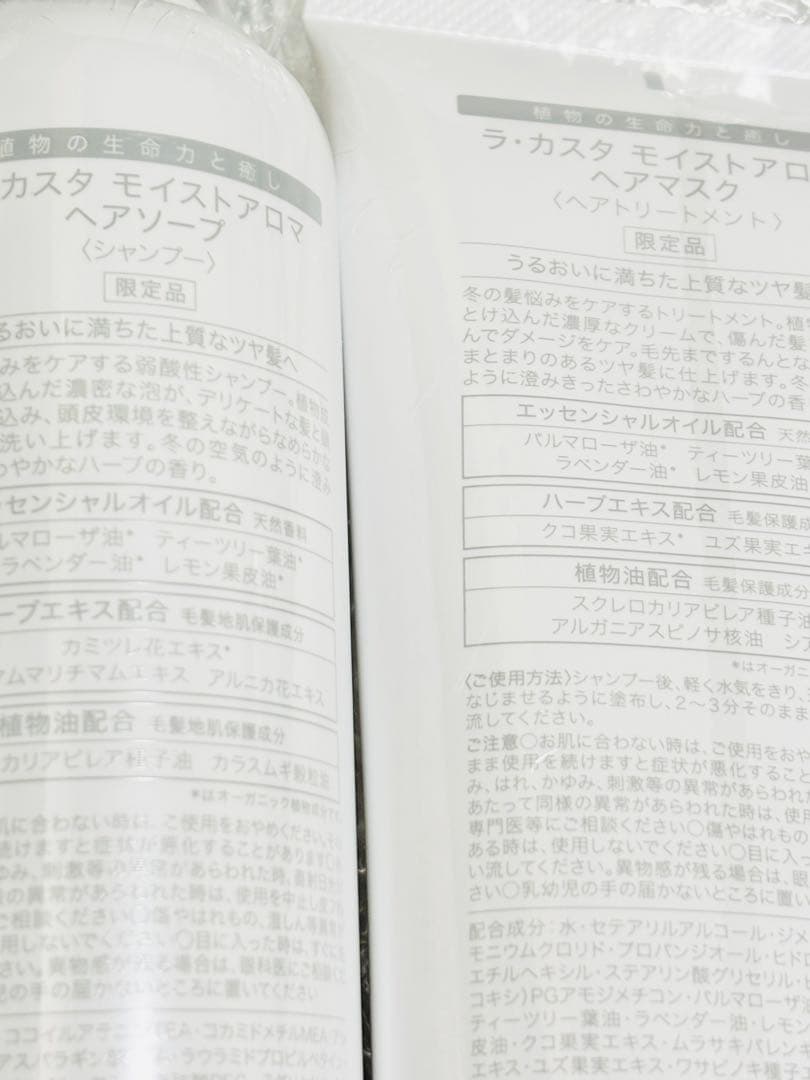 植物の生命力と癒し
カスタ モイストアロマ
ヘアソープ
〈シャンプー〉
限定品
るおいに満ちた上質なツヤ髪へ
みをケアする弱酸性シャンプー。植物
込んだ濃密な泡が、デリケートな髪と
込み、頭皮環境を整えながらなめらかな
洗い上げます。冬の空気のように澄み
わやかなハーブの香り。
ッセンシャルオイル配合 天然香料
ルマローザ油* ティーツリー葉油*
ラベンダー油* レモン果皮油*
ーブエキス配合 毛髪地肌保護成分
カミツレ花エキス*
アムマリチマムエキス アルニカ花エキス
植物油配合 毛髪地肌保護成分
カリアビレア種子油 カラスムギ穀粒油
*はオーガニック植物成分です。
肌に合わない時は、ご使用をおやめください。
続けますと症状が悪化することがあります〇
ゆみ、刺激等の異常があらわれた時、直射日光が
の異常があらわれた時は、使用を中止し皮フ
ご相談ください〇傷やはれもの、湿しん等異常が
用しないでください〇目に入った時は、すぐに洗
さい。異物感が残る場合は、眼科医にご相談くだ
児の手の届かないところに置いてください
植物の生命力と癒し
ラ・カスタ モイストアロ
ヘアマスク
〈ヘアトリートメント〉
限定品
うるおいに満ちた上質なツヤ髪
冬の髪悩みをケアするトリートメント。植
とけ込んだ濃厚なクリームで、傷んだ髪
んでダメージをケア。毛先までするんとな
まとまりのあるツヤ髪に仕上げます。冬
ように澄みきったさわやかなハーブの香
エッセンシャルオイル配合 天然
パルマローザ油* ティーツリー葉
ラベンダー油* レモン果皮油
ハーブエキス配合 毛髪保護成
クコ果実エキス* ユズ果実エキ
植物油配合 毛髪保護成分
スクレロカリアビレア種子油
アルガニアスピノサ核油 シア
*はオーガニ
〈ご使用方法〉シャンプー後、軽く水気をきり、
なじませるように塗布し、2〜3分そのまま
流してください。
ご注意〇お肌に合わない時は、ご使用をおや
まま使用を続けますと症状が悪化すること
み、はれ、かゆみ、刺激等の異常があらわれた
あたって同様の異常があらわれた時は、使用
専門医等にご相談ください〇傷やはれもの
ある時は、使用しないでください〇目に入っ
い流してください。異物感が残る場合は、眼
さい〇乳幼児の手の届かないところに置い
配合成分：水・セテアリルアルコール・ジメ
モニウムクロリド・プロパンジオール・ヒドロ
エチルヘキシル・ステアリン酸グリセリル・
コキシ)PGアモジメチコン・パルマローザ
ティーツリー葉油・ラベンダー油・レモン
皮油・クコ果実エキス・ムラサキバレンギ
エキス・ユズ果実エキス・ワサビノキ種子